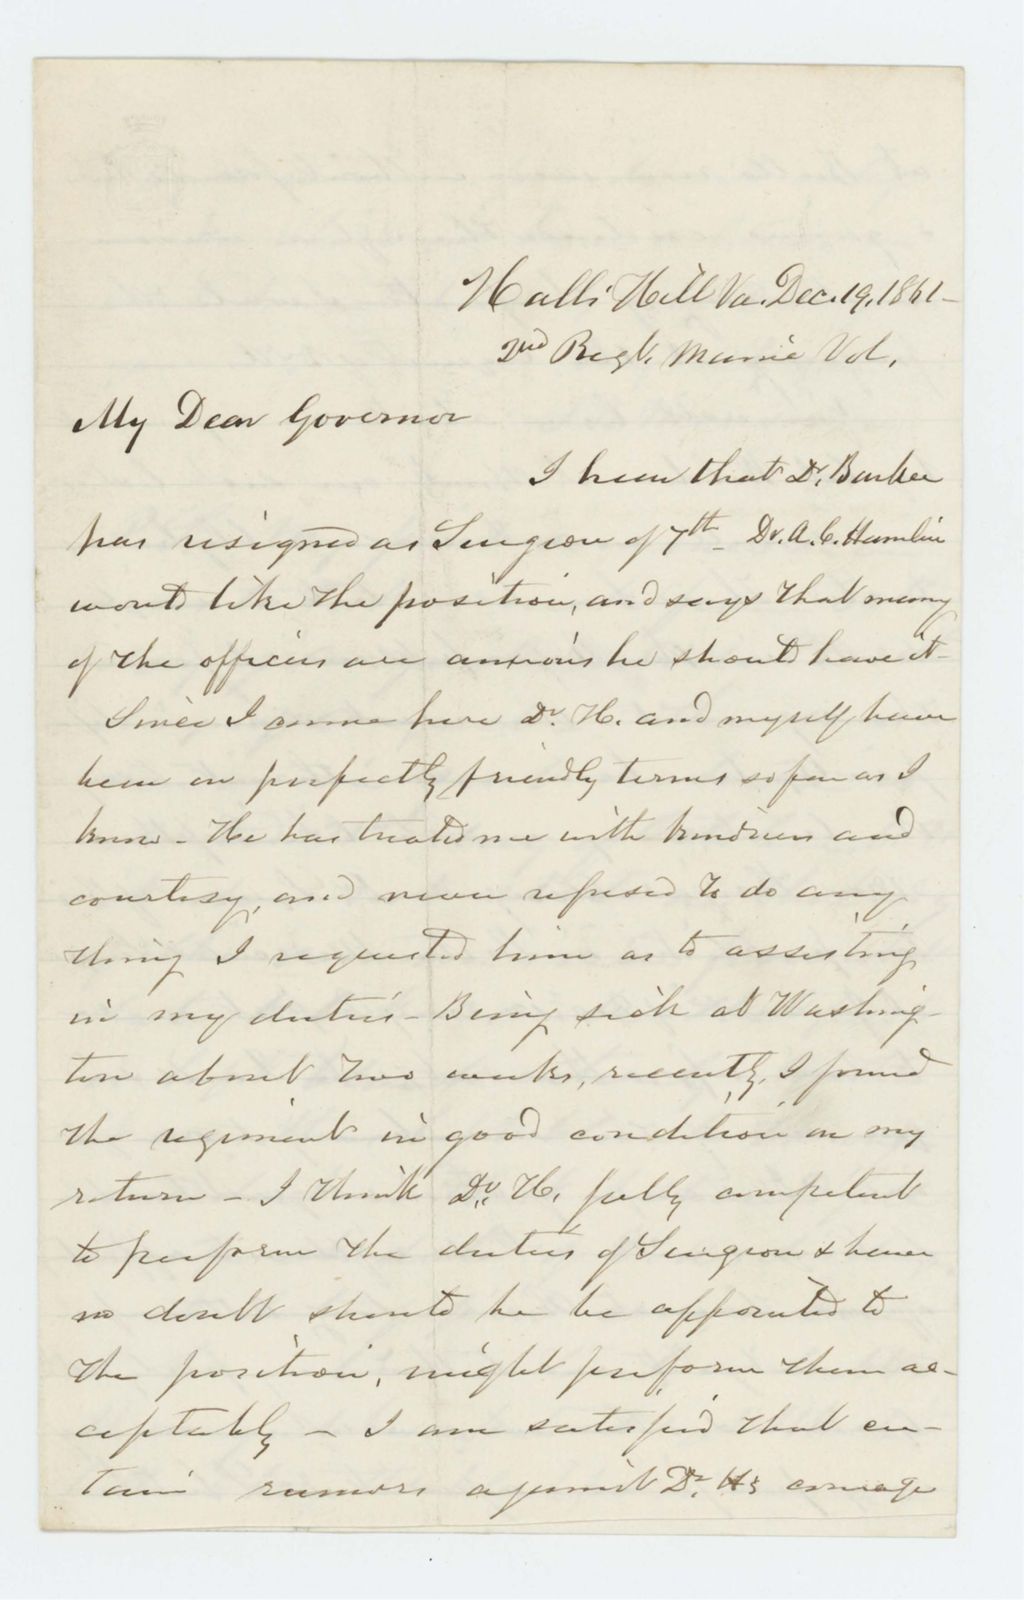 Halls Hill Va. Dec. 19, 1861-
2nd Regt. Maine Vol.
My Dear Governor
I hear that Dr. Barker
has resigned as Surgeon of 7th - Dr. A. C. Hamlin
would like the position, and says that many
of the officers are anxious he should have it -
Since I came here Dr. H. and myself have
been on perfectly friendly terms so far as I
know - He has treated me with kindness and
courtesy, and never refused to do any
thing I requested him as to assisting
in my duties - Being sick at Washing-
ton about two weeks, recently, I found
the regiment in good condition on my
return - I think Dr. H. fully competent
to perform the duties of Surgeon & have
no doubt should he be appointed to
the position, might perform them ac-
ceptably - I am satisfied that cer-
tain rumors against Dr. Hs courage